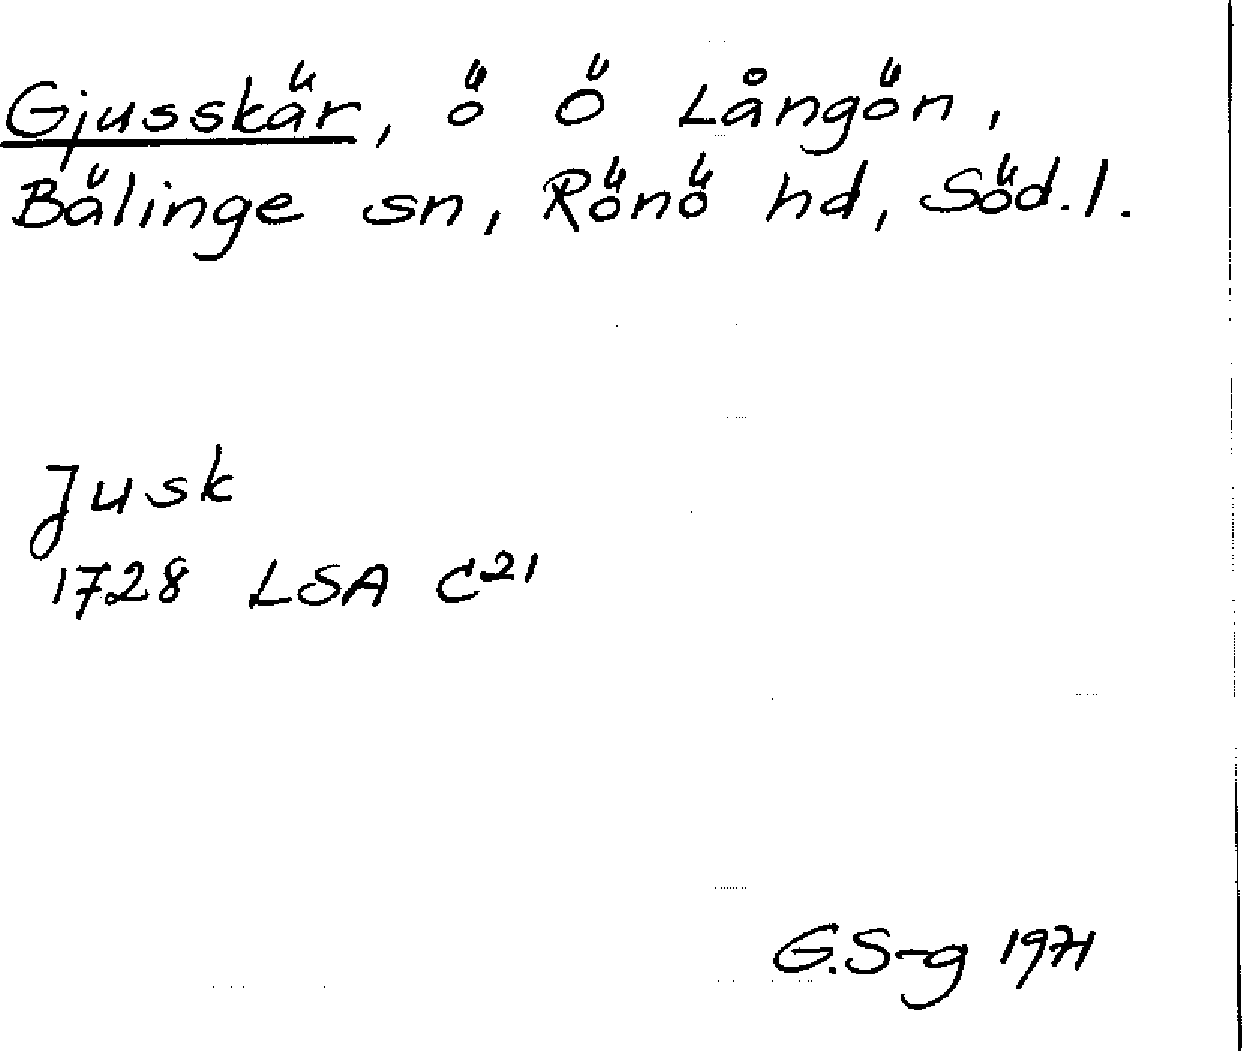 Gjusskär, ö Ö Långön,
Bälinge sn, Rönö hd, Söd.l.
Jusk
1728 LSA C21
G.S-g 1971